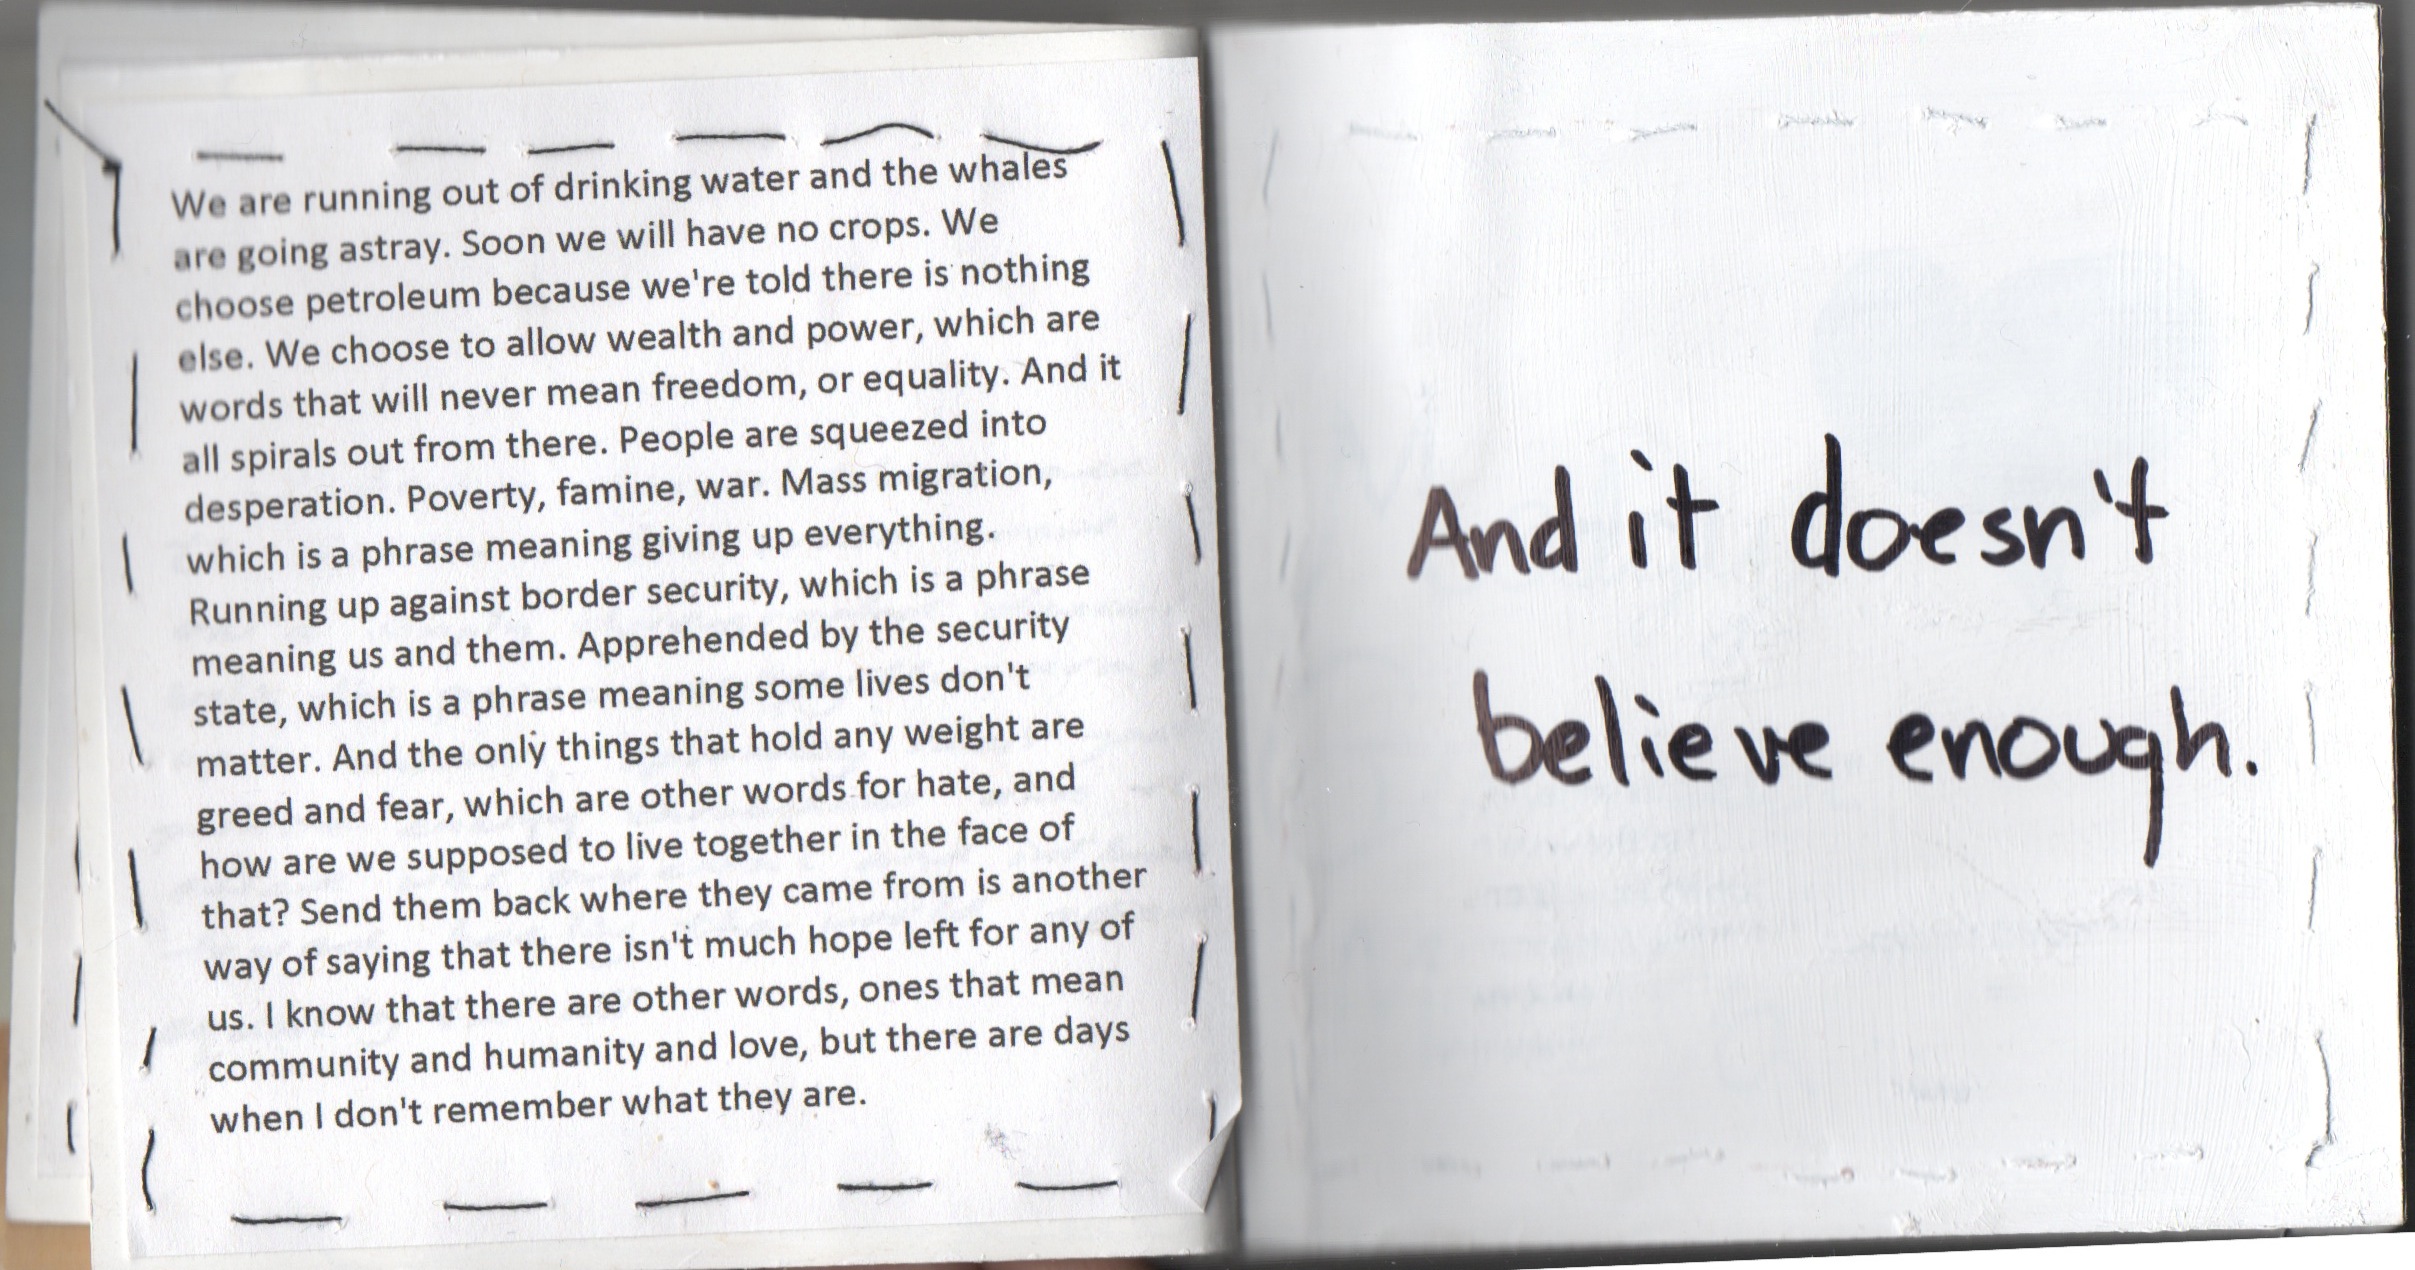 We are running out of drinking water and the whales
are going astray. Soon we will have no crops. We
choose petroleum because we're told there is nothing
else. We choose to allow wealth and power, which are
words that will never mean freedom, or equality. And it
all spirals out from there. People are squeezed into
desperation. Poverty, famine, war. Mass migration,
which is a phrase meaning giving up everything.
Running up against border security, which is a phrase
meaning us and them. Apprehended by the security
state, which is a phrase meaning some lives don't
matter. And the only things that hold any weight are
greed and fear, which are other words for hate, and
how are we supposed to live together in the face of
that? Send them back where they came from is another
way of saying that there isn't much hope left for any of
us. I know that there are other words, ones that mean
community and humanity and love, but there are days
when I don't remember what they are.
And it doesn't
believe enough.